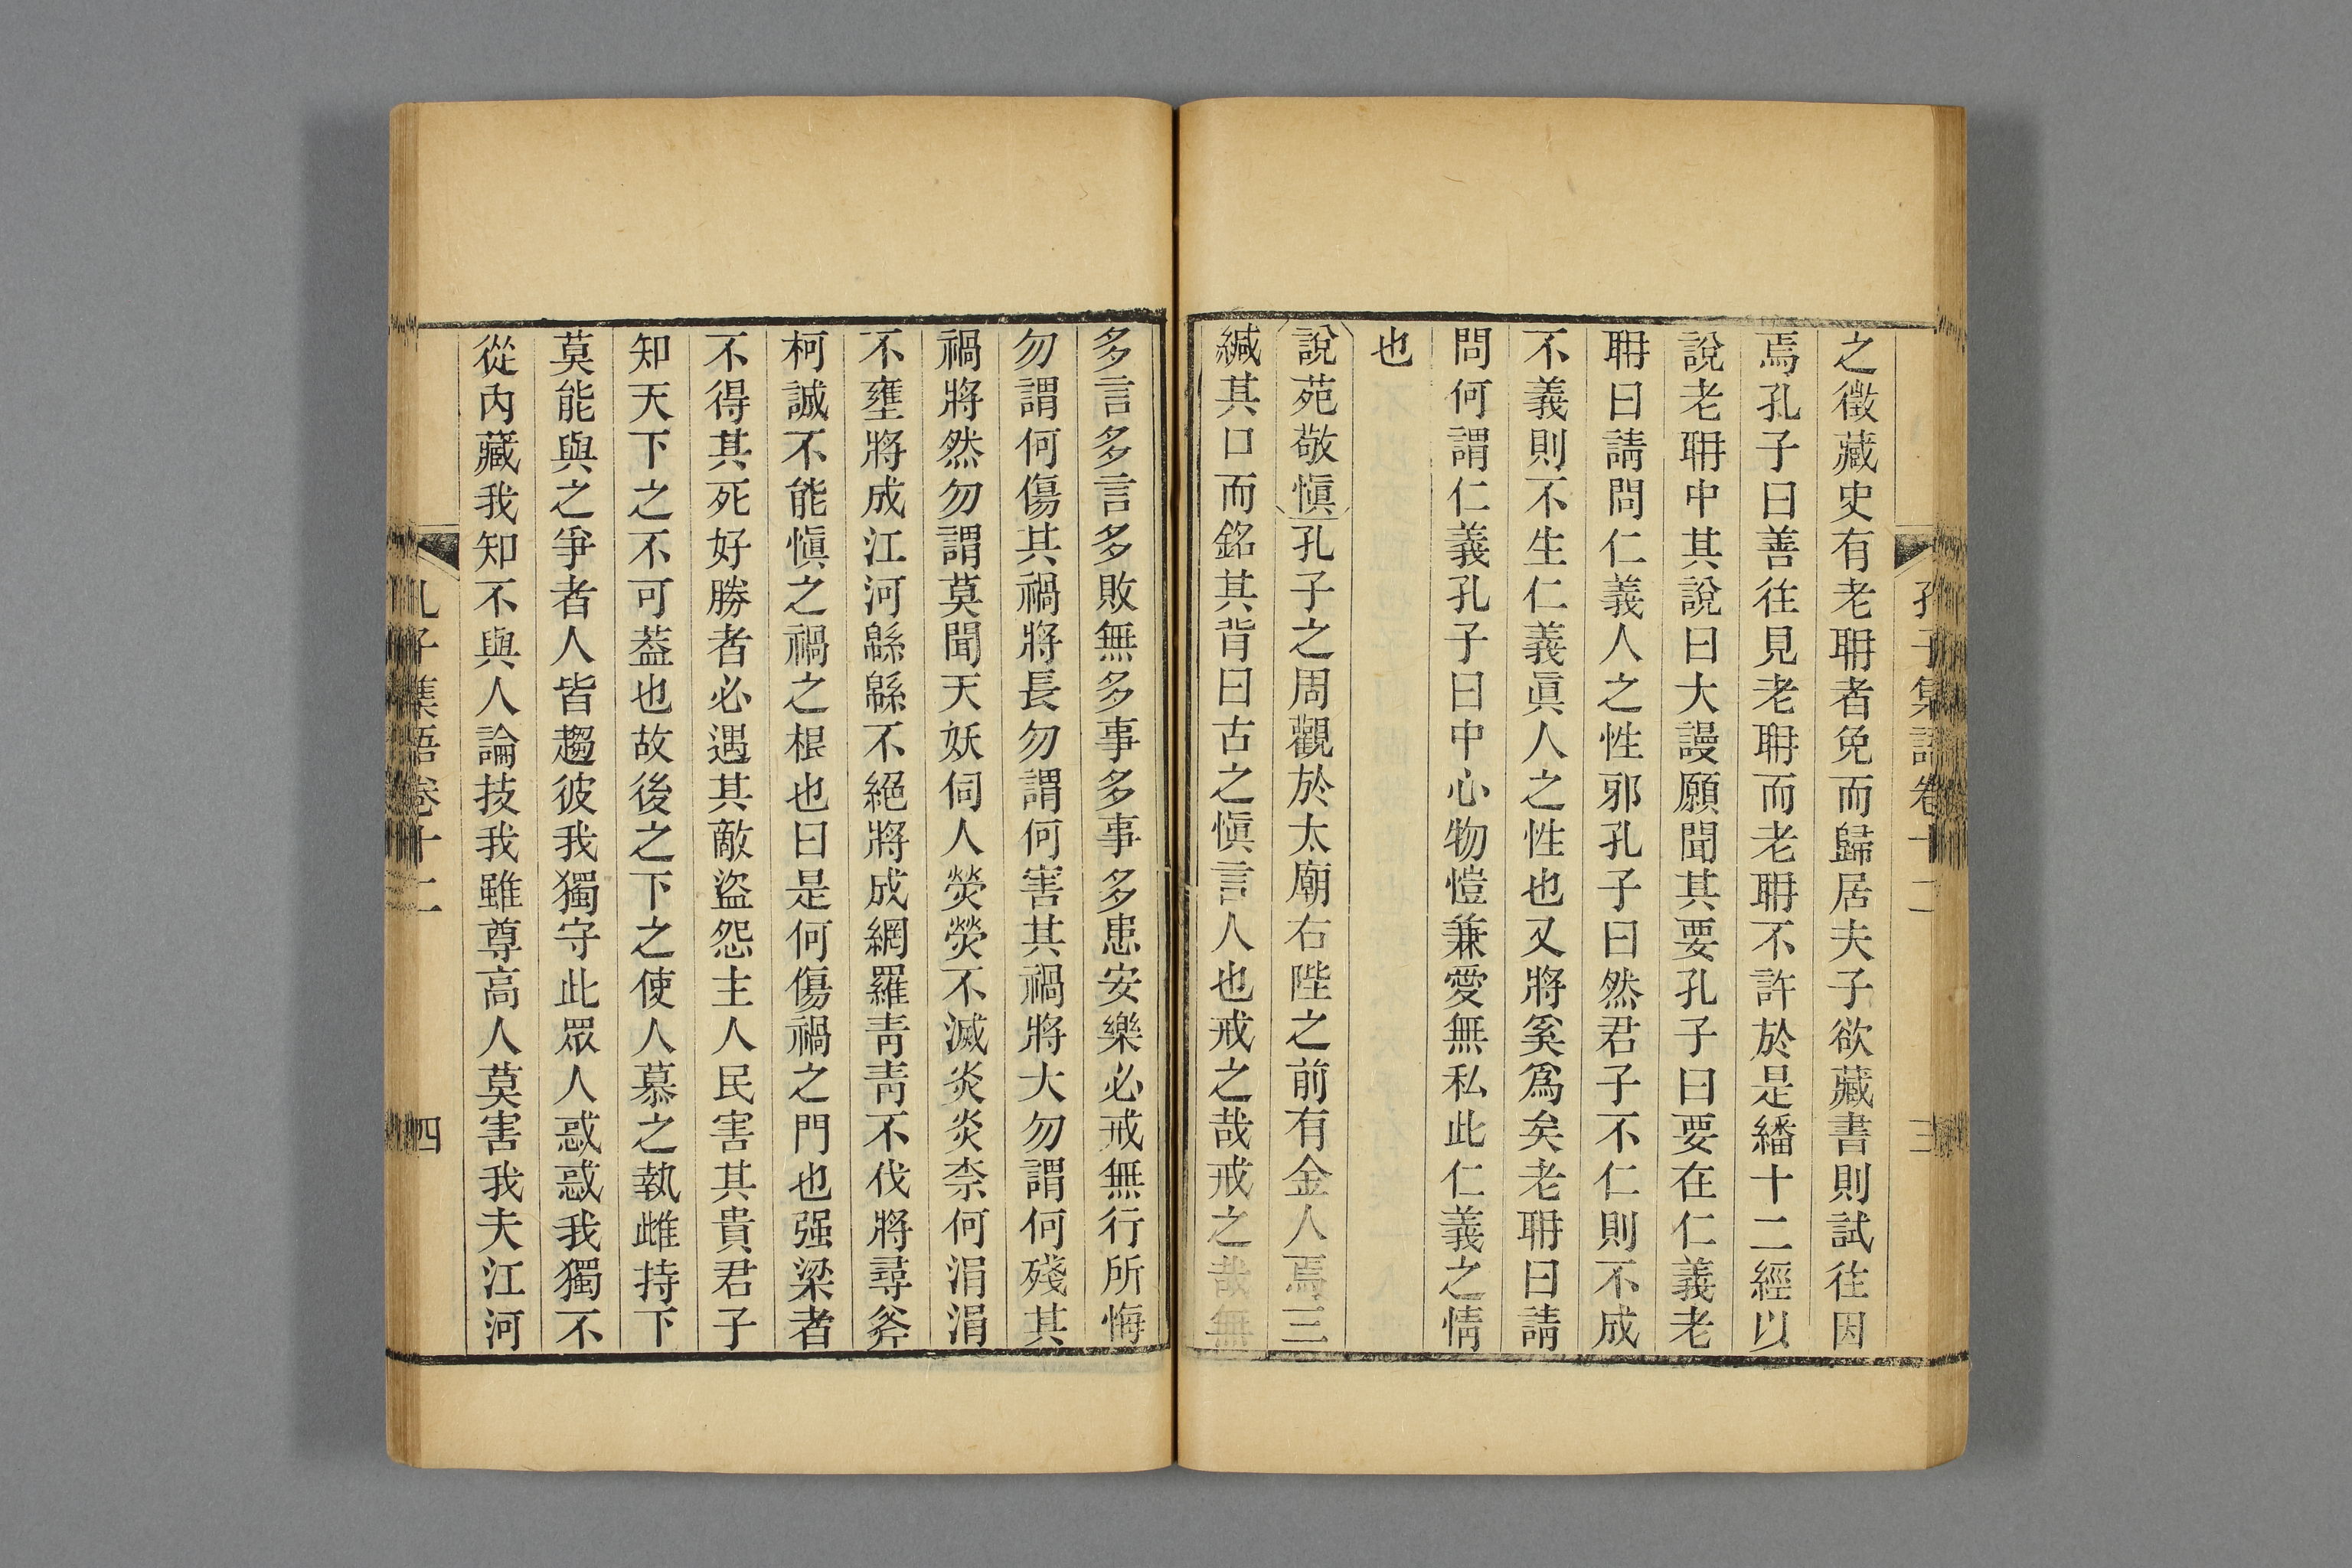 孔子集語卷十二 三
之徵藏史有老聃者免而歸居夫子欲藏書則試往因
焉孔子曰善往見老聃而老聃不許於是繙十二經以
說老聃中其說曰大謾願聞其要孔子曰要在仁義老
聃曰請問仁義人之性邪孔子曰然君子不仁則不成
不義則不生仁義眞人之性也又將奚爲矣老聃曰請
問何謂仁義孔子曰中心物愷兼愛無私此仁義之情
也
說苑敬愼孔子之周觀於太廟右陛之前有金人焉三
緘其口而銘其背曰古之愼言人也戒之哉戒之哉無
多言多言多敗無多事多事多患安樂必戒無行所悔
勿謂何傷其禍將長勿謂何害其禍將大勿謂何殘其
禍將然勿謂莫聞天妖伺人熒熒不滅炎炎柰何涓涓
不壅將成江河緜緜不絕將成網羅靑靑不伐將尋斧
柯誠不能愼之禍之根也曰是何傷禍之門也强梁者
不得其死好勝者必遇其敵盜怨主人民害其貴君子
知天下之不可蓋也故後之下之使人慕之執雌持下
莫能與之爭者人皆趨彼我獨守此眾人惑惑我獨不
從內藏我知不與人論技我雖尊高人莫害我夫江河
孔子集語卷十二 四